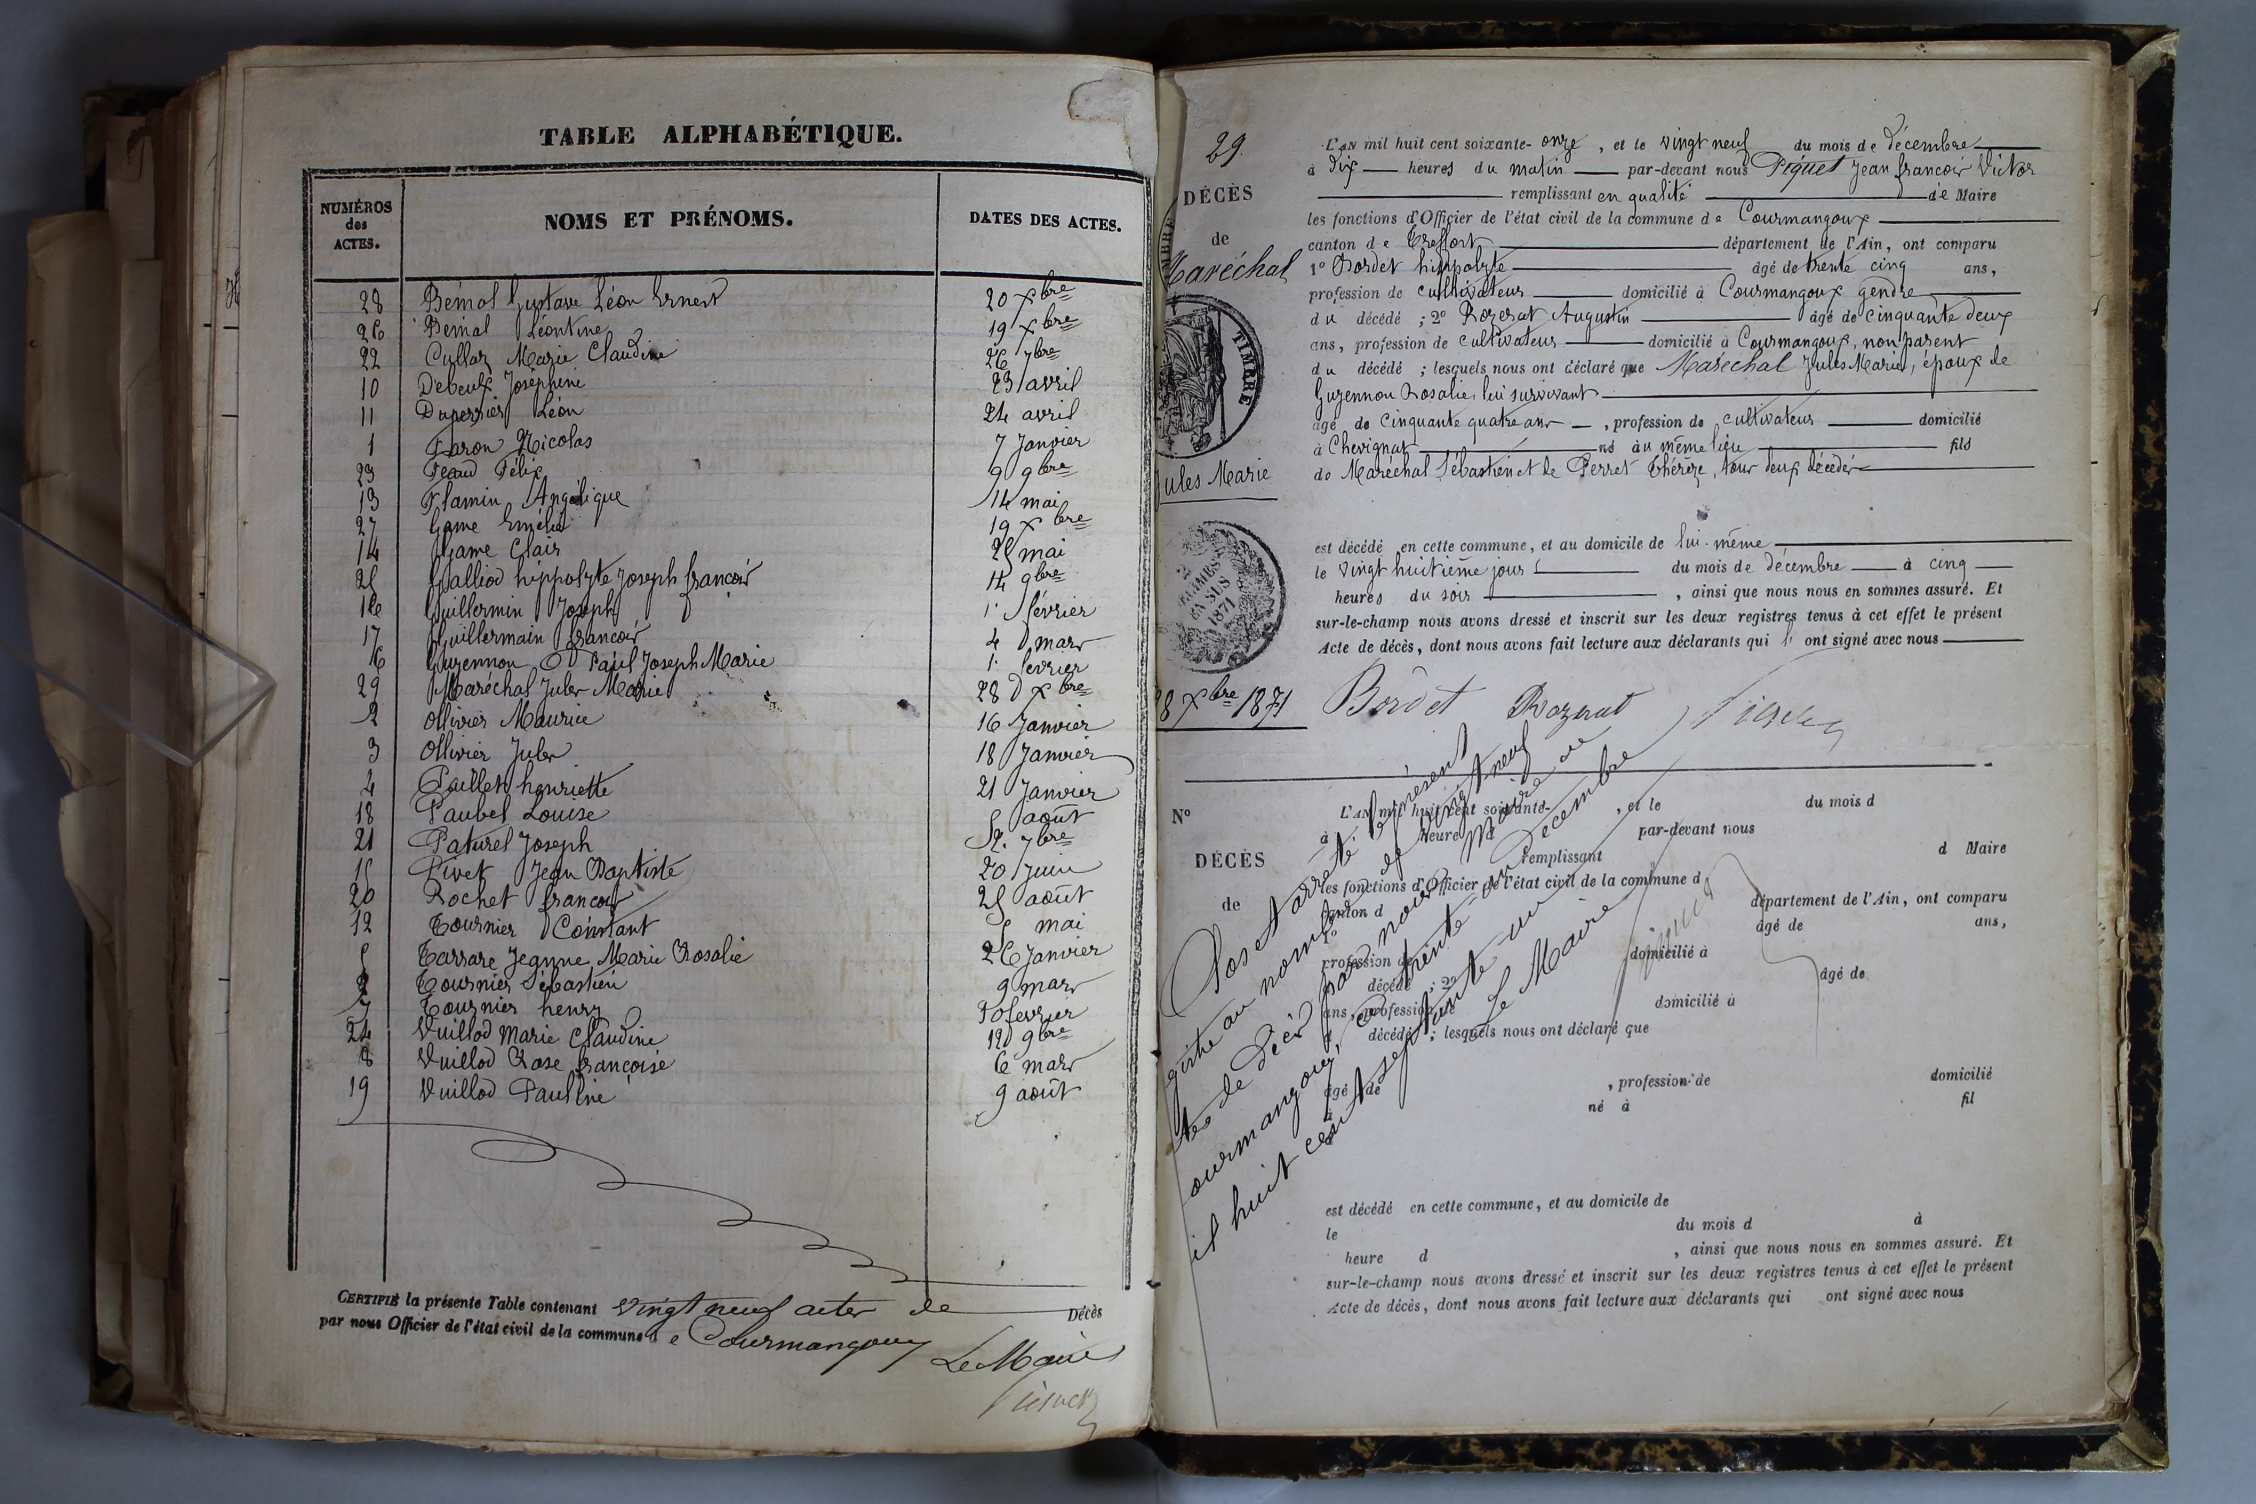 TABLE ALPHABÉTIQUE.
NUMÉROS des ACTES. NOMS ET PRÉNOMS. DATES DES ACTES.
28 Béinal Gustave Léon Ernest 20 Xbre
26 Béinal Léontine 19 Xbre
22 Cullaz Marie Claudine 26 7bre
10 Debeux Joséphine 23 avril
11 Duperrier Léon 24 avril
1 Faron Nicolas 7 Janvier
23 Feaud Félix 9 9bre
13 Flamin Angélique 14 mai
27 Game 19 Xbre
14 Game Clair 25 mai
25 Galliod hippolyte Joseph françois 14 9bre
Guillermin Joseph 1er février
17 Guillermain françois 4 mars
16 Guzennou Paul Joseph Marie 1er fevrier
29 Maréchal Jules Marie 28 Xbre
2 Ollivier Maurice 16 Janvier
3 Ollivier Jules 18 Janvier
4 Paillet henriette 21 Janvier
18 Paubel Louise 5 août
21 Paturel Joseph 7bre
15 Pivet Jean Baptiste 20 Juin
20 Rochet francois 25 août
12 Tournier Constant 5 mai
5 Tarrare Jeanne Marie Rosalie 26 Janvier
Tournier Sébastien 9 mars
7 Tournier henry fevrier
24 Vuillod Marie Claudine 12 9bre
8 Vuillod Rose françoise 6 mars
19 Vuillod Pauline 9 août
CERTIFIÉ la présente Table contenant vingt neuf actes de Décès
par nous Officier de l'état civil de la commune de Courmangoux
Le Maire
Piquet
29.
DÉCÈS
de
Maréchal
TIMBRE
Jules Marie
2
DÉCIMES
EN SUS
1871
28 Xbre 1871
L'AN mil huit cent soixante- onze, et le vingt neuf du mois de décembre
à dix heures du matin par-devant nous Piquet Jean françois Victor
remplissant en qualité de Maire
les fonctions d'Officier de l'état civil de la commune de Courmangoux
canton de Treffort département de l'Ain, ont comparu
1o Bordet hippolyte âgé de trente cinq ans,
profession de cultivateur domicilié à Courmangoux gendre
du décédé ; 2o Rozerat Augustin âgé de cinquante deux
ans, profession de cultivateur domicilié à Courmangoux, non parent
du décédé ; lesquels nous ont déclaré que Maréchal Jules Marie, époux de
Guzennou Rosalie, lui survivant
âgé de cinquante quatre ans, profession de cultivateur domicilié
à Chevignat né au même lieu fils
de Maréchal Sébastien et de Perret Thérèze, tous deux décédés
est décédé en cette commune, et au domicile de lui-même
le vingt huitième jour du mois de décembre à cinq
heures du soir, ainsi que nous nous en sommes assuré. Et
sur-le-champ nous avons dressé et inscrit sur les deux registres tenus à cet effet le présent
Acte de décès, dont nous avons fait lecture aux déclarants qui l' ont signé avec nous
Bordet Rozerat Piquet
No
DÉCÈS
de
L'AN mil huit cent soixante- , et le du mois d
à heure d par-devant nous
remplissant d Maire
les fonctions d'Officier de l'état civil de la commune d
canton d département de l'Ain, ont comparu
1o âgé de ans,
profession de domicilié à
décédé ; 2o âgé de
ans, profession de domicilié à
d décédé ; lesquels nous ont déclaré que
âgé de , profession de domicilié
à né à fil
est décédé en cette commune, et au domicile de
le du mois d à
heure d , ainsi que nous nous en sommes assuré. Et
sur-le-champ nous avons dressé et inscrit sur les deux registres tenus à cet effet le présent
Acte de décès, dont nous avons fait lecture aux déclarants qui ont signé avec nous
Clos et arrêté le présent
gistre au nombre de vingt neuf
tes de décès par nous Maire de
ourmangoux, ce trente un Décembre
il huit cent septante un
Le Maire
Piquet